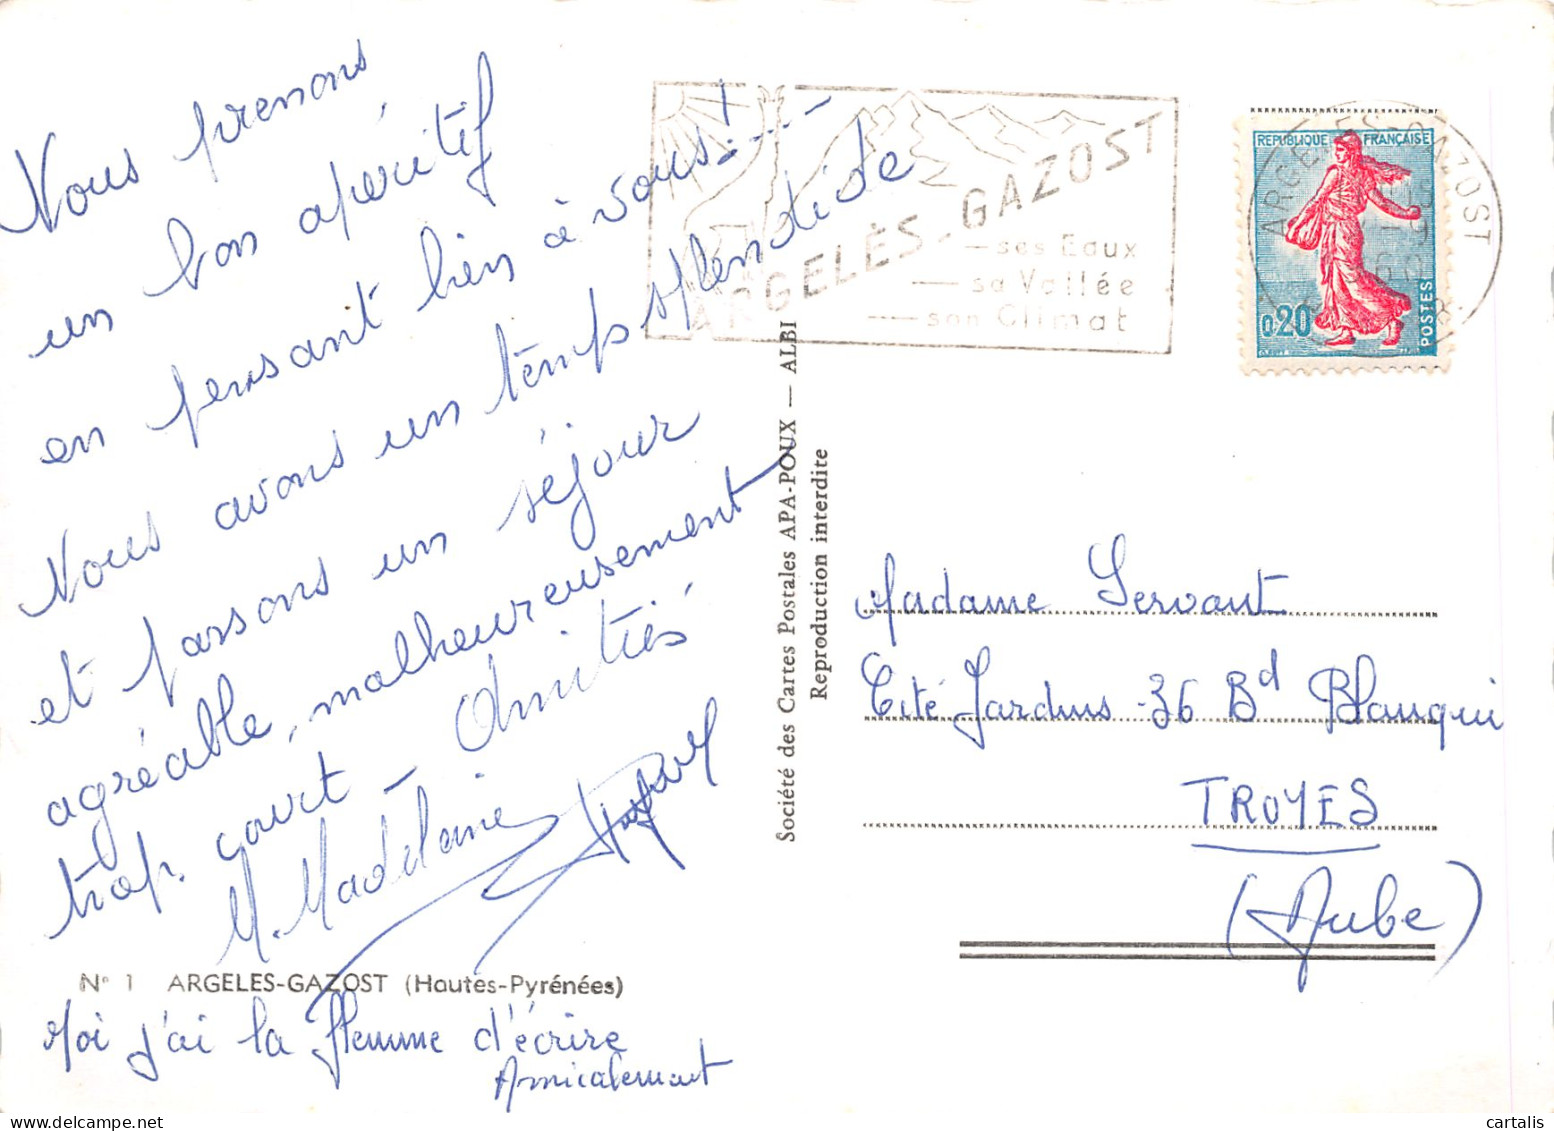 Nous prenons
un bon apéritif
en pensant bien à vous!....
Nous avons un temps splendide
et passons un séjour
agréable, malheureusement
trop court - Amitiés
M. Madeleine
N° 1 ARGELES-GAZOST (Hautes-Pyrénées)
Moi j'ai la flemme d'écrire
Amicalement
Société des Cartes Postales APA-POUX — ALBI
Reproduction interdite
ARGELÈS-GAZOST
— ses Eaux
— sa Vallée
— son Climat
REPUBLIQUE FRANÇAISE
0,20
POSTES
ARGELES-GAZOST
Madame Servant
Cité Jardins - 36 Bd Blanqui
TROYES
(Aube)
cartalis